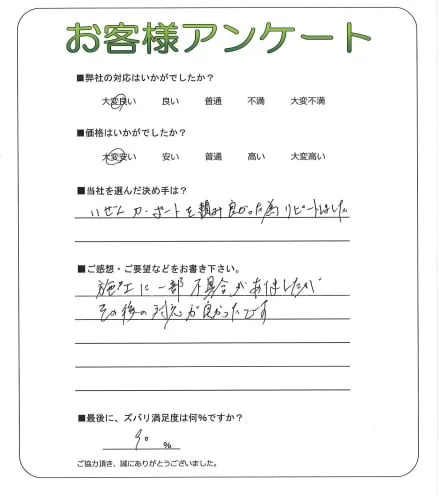 お客様アンケート
■弊社の対応はいかがでしたか？
大変良い 良い 普通 不満 大変不満
■価格はいかがでしたか？
大変安い 安い 普通 高い 大変高い
■当社を選んだ決め手は？
いぜん カーポートを頼み良かった為リピートしました
■ご感想・ご要望などをお書き下さい。
施工に一部不具合がありましたが
その後の対応が良かったです
■最後に、ズバリ満足度は何%ですか？
90 %
ご協力頂き、誠にありがとうございました。